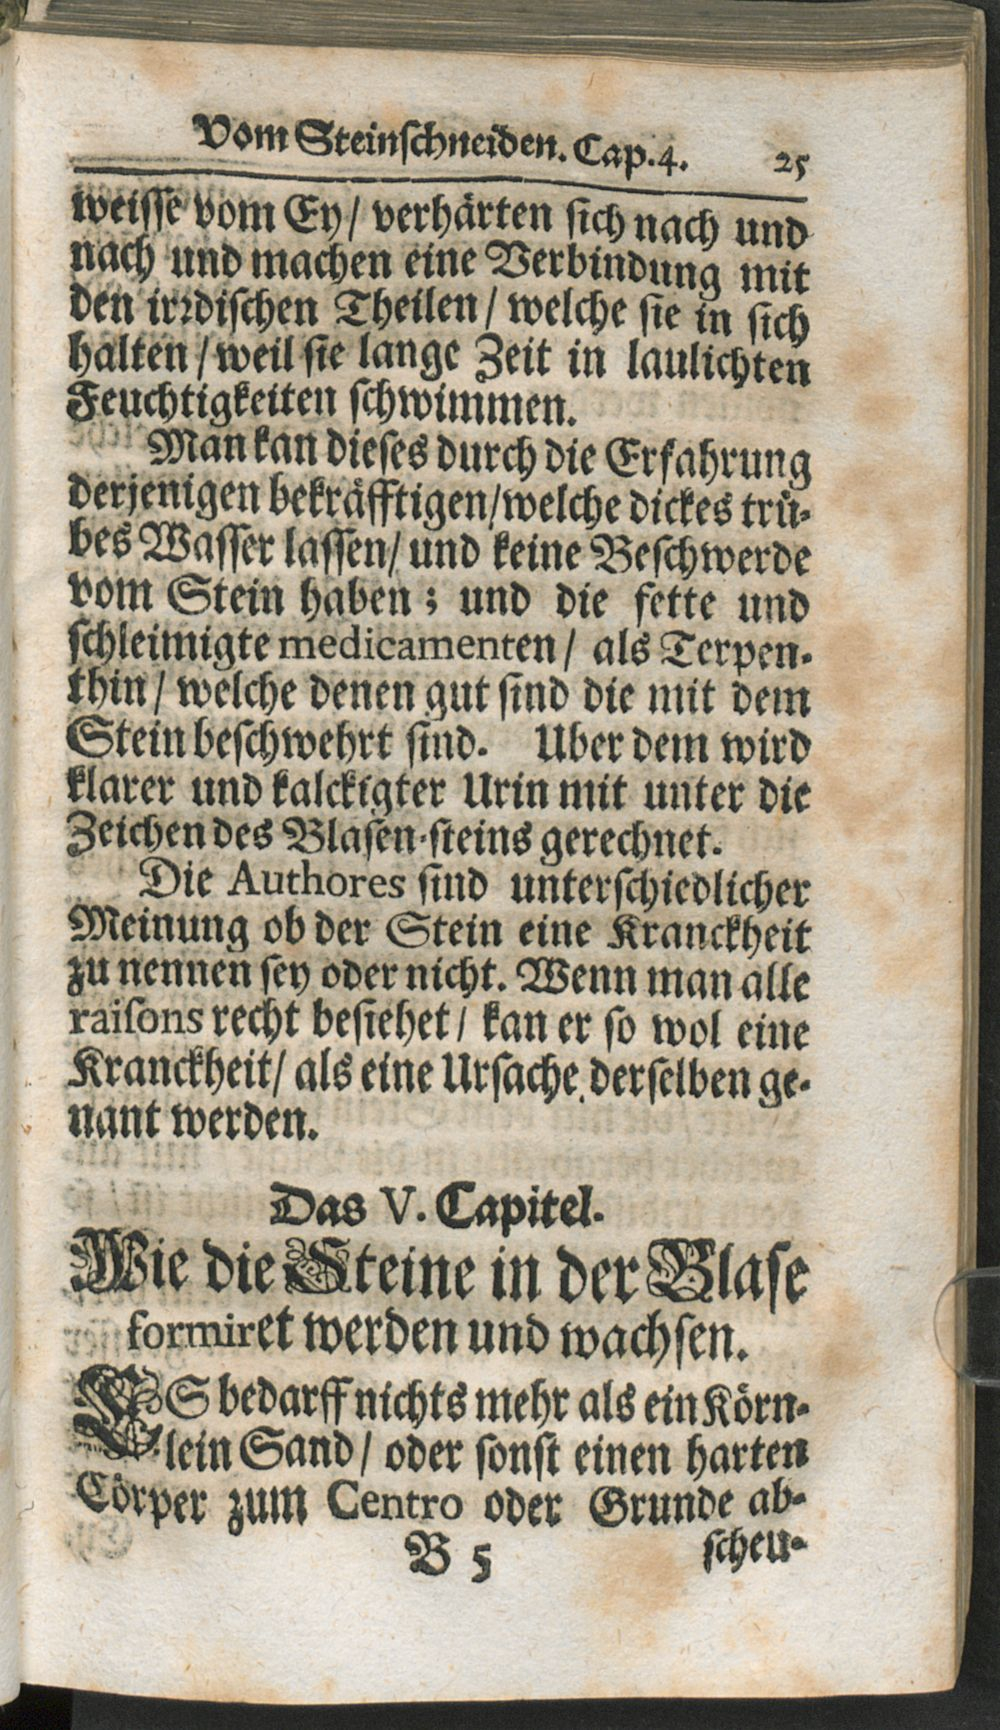 Vom Steinschneiden. Cap. 4. 25
weisse vom Ey / verhärten sich nach und
nach und machen eine Verbindung mit
den irrdischen Theilen / welche sie in sich
halten / weil sie lange Zeit in laulichten
Feuchtigkeiten schwimmen.
Man kan dieses durch die Erfahrung
derjenigen bekräfftigen / welche dickes trü-
bes Wasser lassen / und keine Beschwerde
vom Stein haben; und die fette und
schleimigte medicamenten / als Terpen-
thin / welche denen gut sind die mit dem
Stein beschwehrt sind. Uber dem wird
klarer und kalckigter Urin mit unter die
Zeichen des Blasen-steins gerechnet.
Die Authores sind unterschiedlicher
Meinung ob der Stein eine Kranckheit
zu nennen sey oder nicht. Wenn man alle
raisons recht besiehet / kan er so wol eine
Kranckheit / als eine Ursache derselben ge-
nant werden.
Das V. Capitel.
Wie die Steine in der Blase
formiret werden und wachsen.
ES bedarff nichts mehr als ein Körn-
lein Sand / oder sonst einen harten
Cörper zum Centro oder Grunde ab-
B 5 scheu-